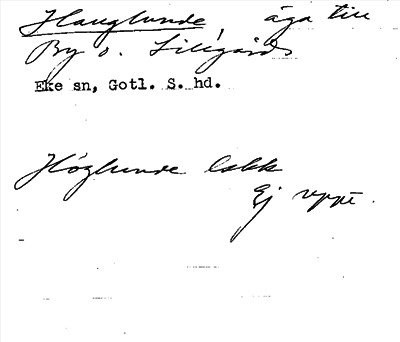 Hauglunde, äga till
By o. Lillgårds
Eke sn, Gotl. S. hd.
Höglunde lakk
Ej uppt.